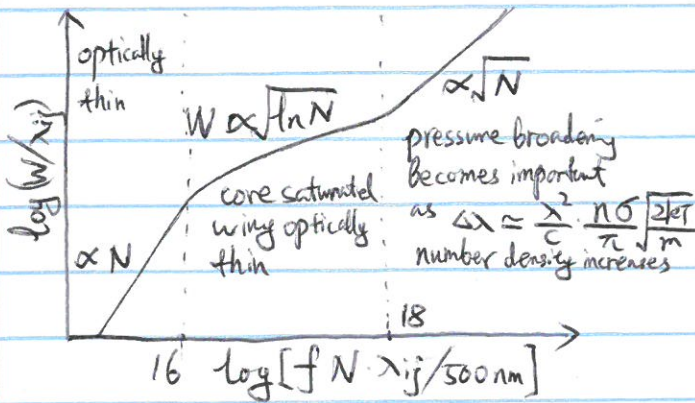 optically
thin
log(W/λij)
∝ N
W ∝ √ln N
core saturated
wing optically
thin
∝ √N
pressure broadening
becomes important
as Δλ ≃ λ²/c · nσ/π √2kT/m
number density increases
16
18
log[f N · λij/500nm]